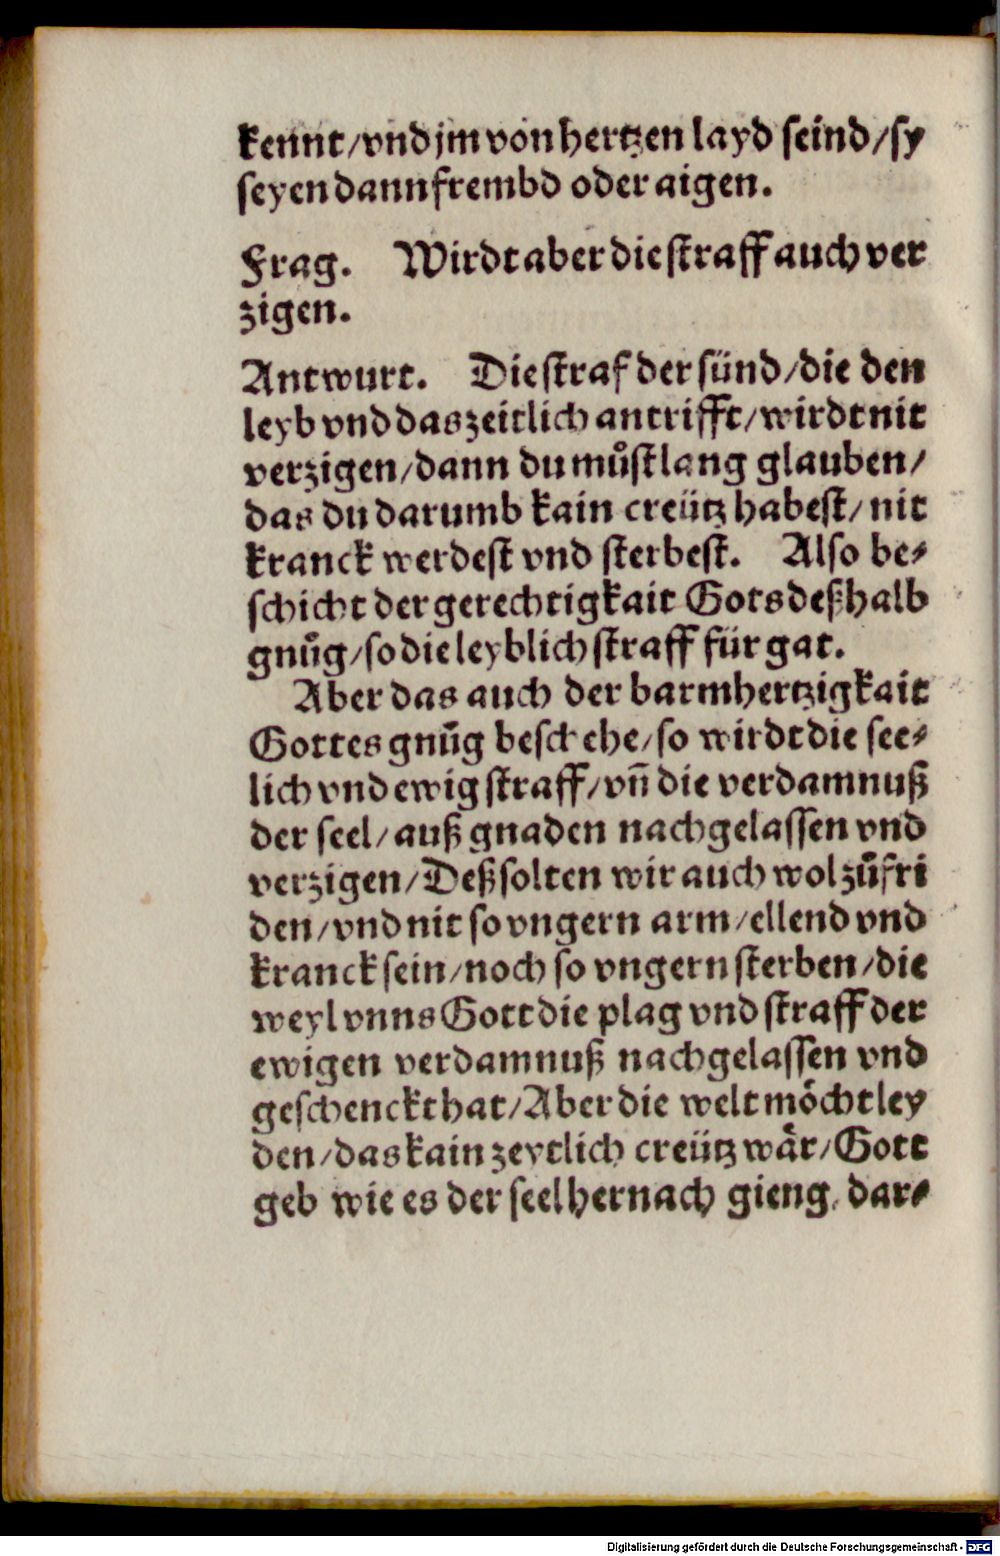 kennt/vnd jm von hertzen layd seind/sy
seyen dann frembd oder aigen.
Frag. Wirdt aber die straff auch ver
zigen.
Antwurt. Die straf der sünd/die den
leyb vnd das zeitlich antrifft/wirdt nit
verzigen/dann du můst lang glauben/
das du darumb kain creütz habest/nit
kranck werdest vnd sterbest. Also be⸗
schicht der gerechtigkait Gots deßhalb
gnůg/so die leyblich straff für gat.
Aber das auch der barmhertzigkait
Gottes gnůg beschehe/so wirdt die see⸗
lich vnd ewig straff/vñ die verdamnuß
der seel/auß gnaden nachgelassen vnd
verzigen/Deß solten wir auch wol zůfri
den/vnd nit so vngern arm/ellend vnd
kranck sein/noch so vngern sterben/die
weyl vnns Gott die plag vnd straff der
ewigen verdamnuß nachgelassen vnd
geschenckt hat/Aber die welt moͤcht ley
den/das kain zeytlich creütz waͤr/Gott
geb wie es der seel hernach gieng/dar⸗
Digitalisierung gefördert durch die Deutsche Forschungsgemeinschaft - DFG